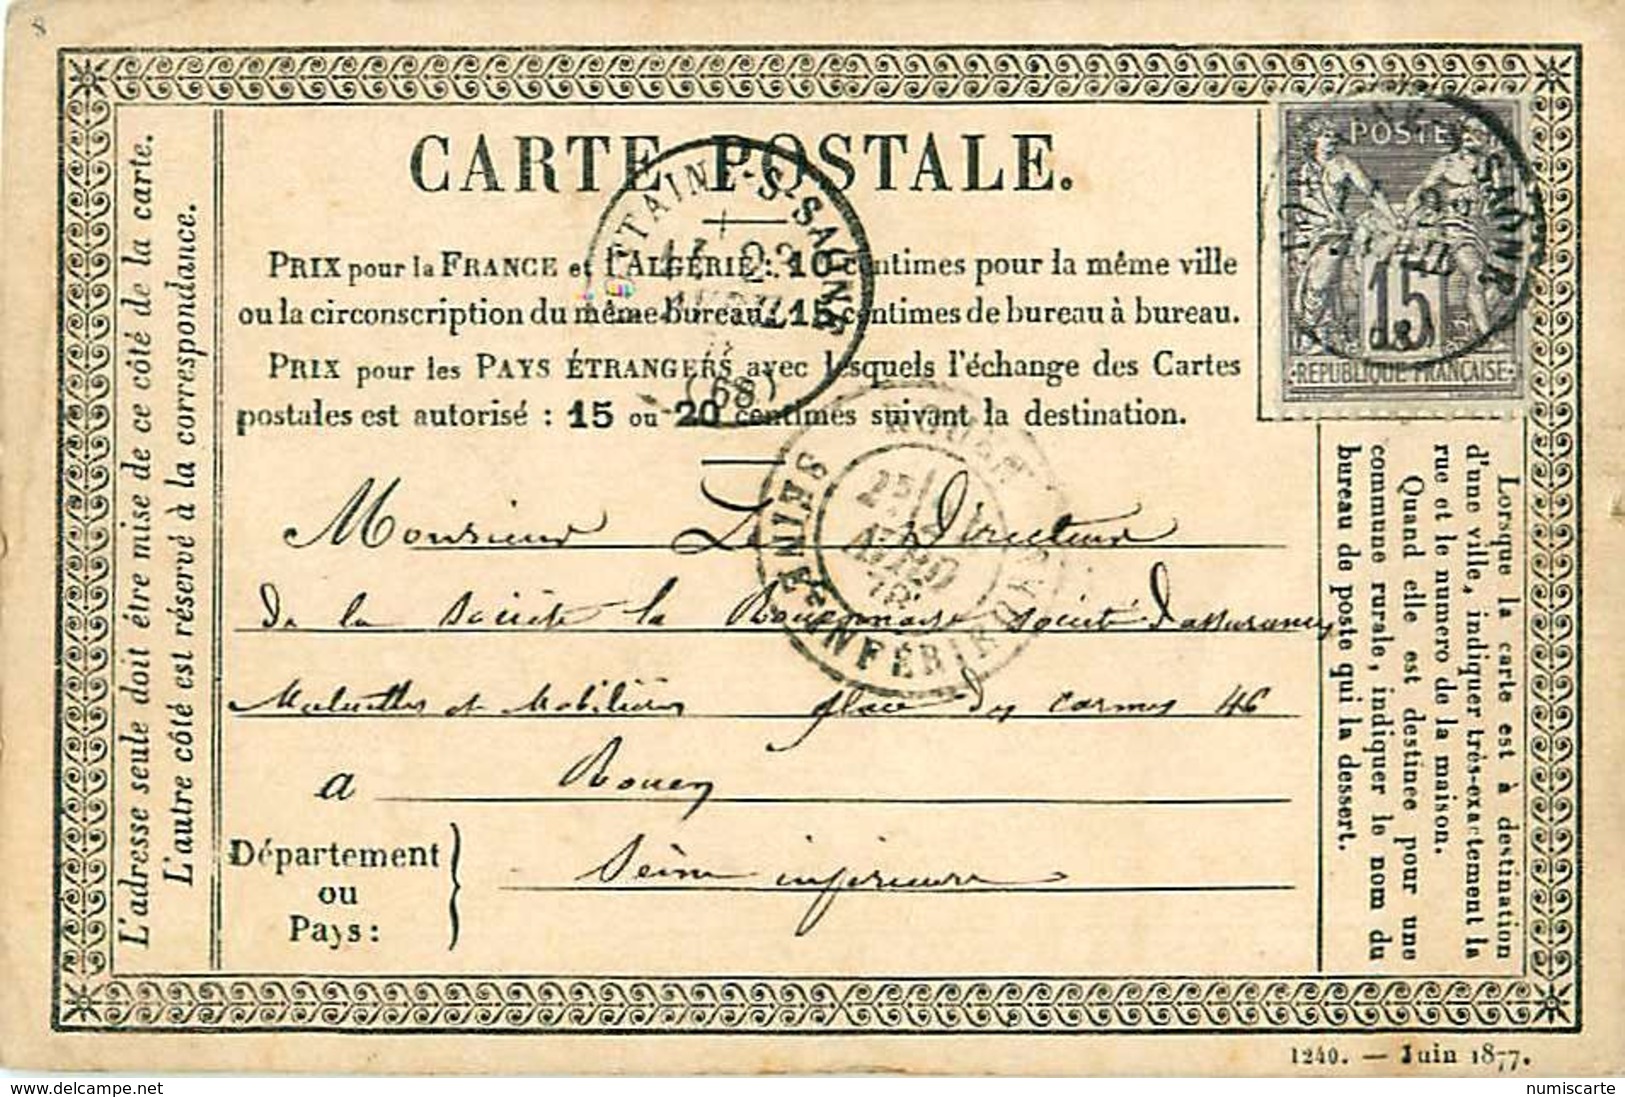 8
CARTE POSTALE.
PRIX pour la FRANCE et l'ALGÉRIE: 10 centimes pour la même ville
ou la circonscription du même bureau, 15 centimes de bureau à bureau.
PRIX pour les PAYS ÉTRANGERS avec lesquels l'échange des Cartes
postales est autorisé : 15 ou 20 centimes suivant la destination.
L'adresse seule doit être mise de ce côté de la carte.
L'autre côté est réservé à la correspondance.
POSTE
15
REPUBLIQUE FRANÇAISE
TAIN-S-SAONE
22
AVRIL
(68)
ROUEN
AVRIL
78
SEINE-INFÉRIEURE
Monsieur Le Directeur
de la Société la Rouennaise société d'assurances
Mutuelles et Mobilières place des carmes 46
à Rouen
Département
ou
Pays :
Seine inférieure
Lorsque la carte est à destination
d'une ville, indiquer très-exactement la
rue et le numero de la maison.
Quand elle est destinée pour une
commune rurale, indiquer le nom du
bureau de poste qui la dessert.
1240. — Juin 1877.
delcampe.net
numiscarte